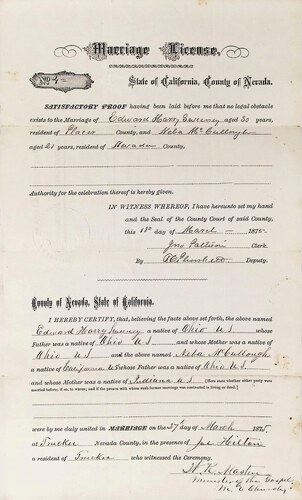 Marriage License.
No 4
State of California, County of Nevada.
SATISFACTORY PROOF having been laid before me that no legal obstacle
exists to the Marriage of Edward Harry Sweeney aged 30 years,
resident of Placer County, and Neba McCullough
aged 21 years, resident of Nevada County,
Authority for the celebration thereof is hereby given.
IN WITNESS WHEREOF, I have hereunto set my hand
and the Seal of the County Court of said County,
this 1st day of March 1875
Jno Pattison Clerk.
By Deputy.
County of Nevada, State of California.
I HEREBY CERTIFY, that, believing the facts above set forth, the above named
Edward Harry Sweeney a native of Ohio U S whose
Father was a native of Ohio U S and whose Mother was a native of
Ohio U S and the above named Neba McCullough
a native of California U S whose Father was a native of Ohio U S
and whose Mother was a native of Indiana U S (Here state whether either party were
married before; if so, to whom; and if the person with whom such former marriage was contracted is living or dead.)
were by me duly united in MARRIAGE on the day of March 1875,
at Truckee Nevada County, in the presence of Joe Hilton
a resident of Truckee who witnessed the Ceremony.
Minister of the Gospel
M. E. Church